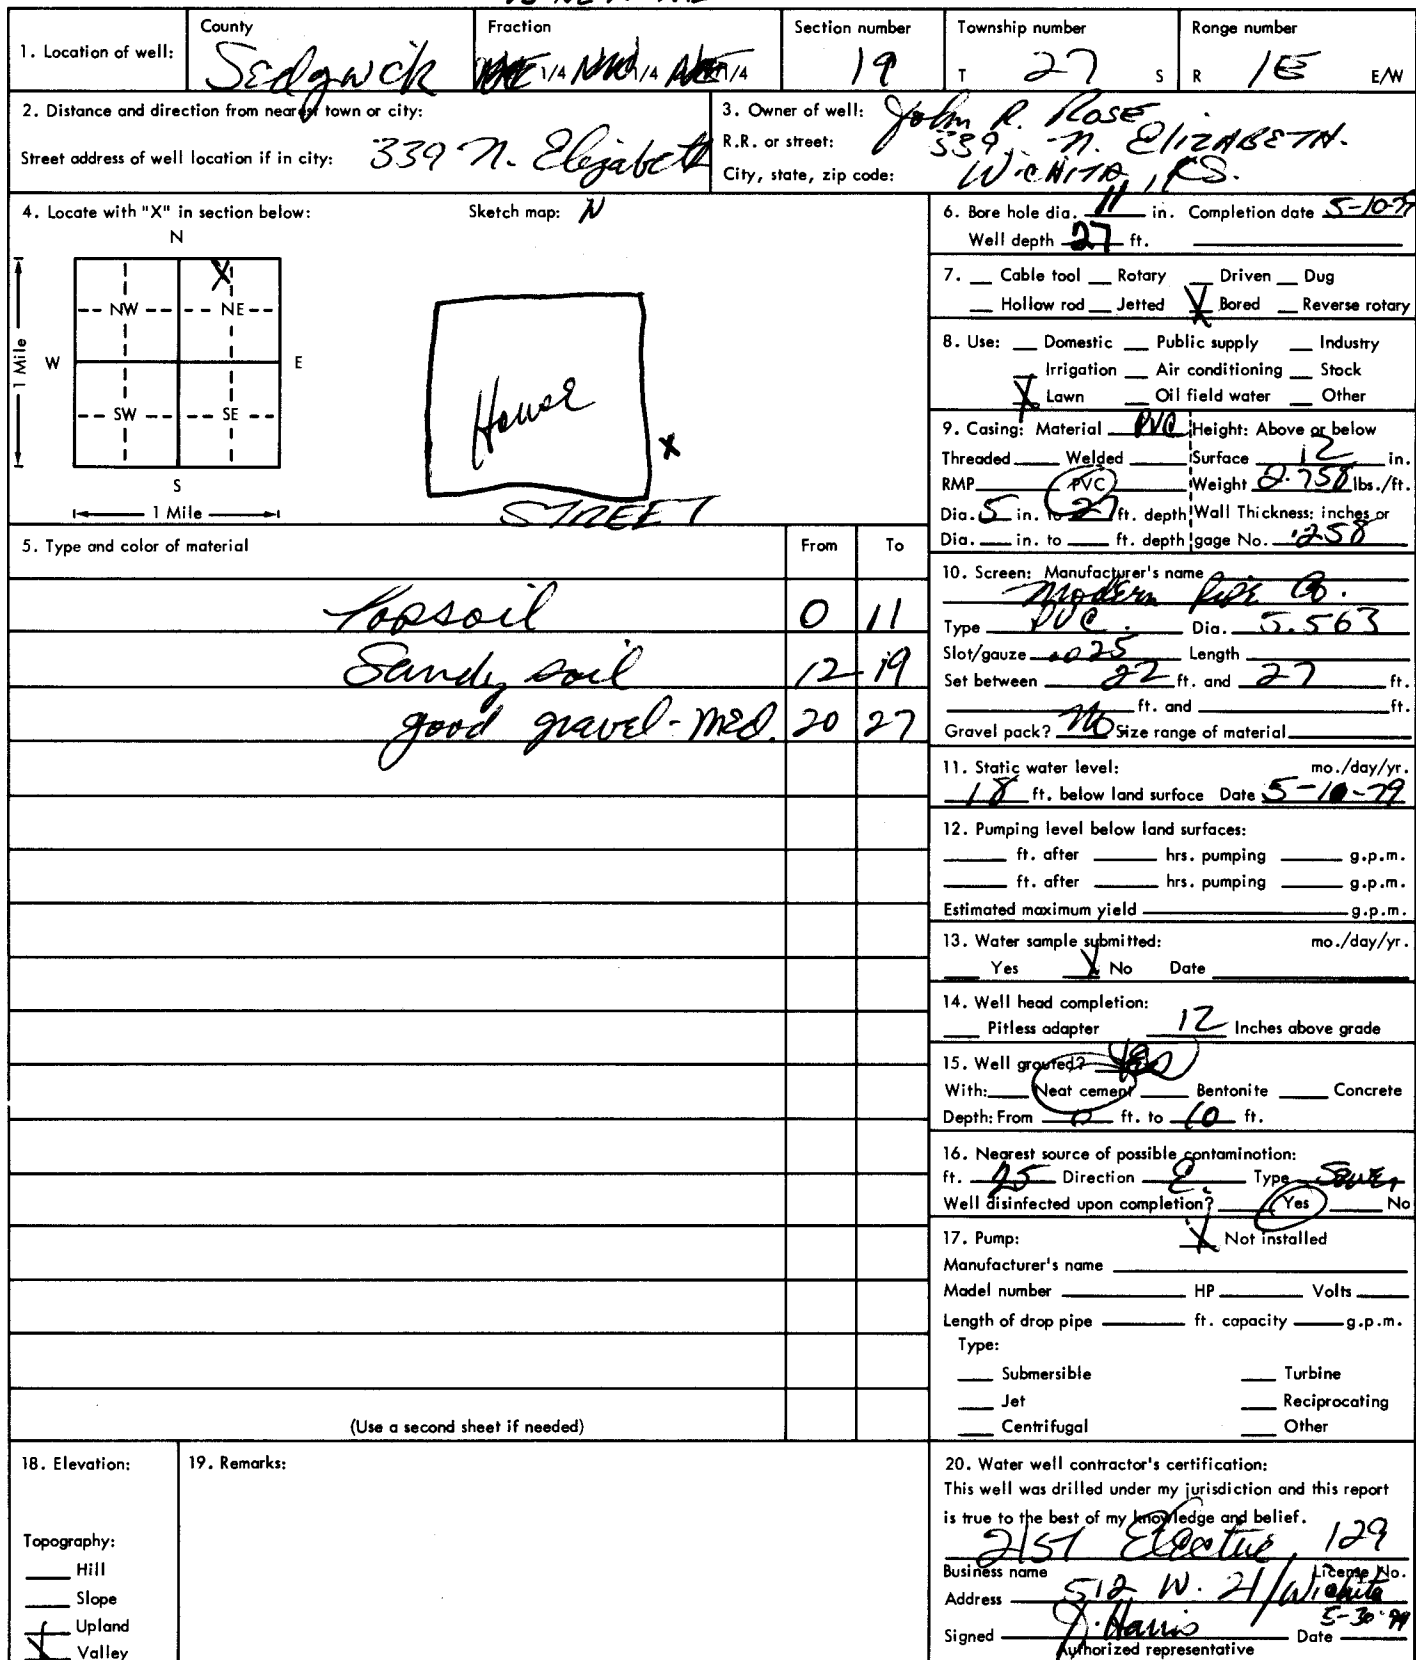 1. Location of well:
County
Sedgwick
Fraction
1/4 1/4 1/4
Section number
19
Township number
T 27 S
Range number
R 1E E/W
2. Distance and direction from nearest town or city:
Street address of well location if in city: 339 N. Elizabeth
3. Owner of well: John R. Rose
R.R. or street: 339 N. ELIZABETH.
City, state, zip code: WICHITA, KS.
4. Locate with "X" in section below:
N
NW NE
W E
SW SE
S
1 Mile
1 Mile
X
Sketch map: N
House
X
STREET
5. Type and color of material From To
Topsoil 0 11
Sandy soil 12 19
good gravel-med. 20 27
(Use a second sheet if needed)
6. Bore hole dia. 11 in. Completion date 5-10-79
Well depth 27 ft.
7. Cable tool Rotary Driven Dug
Hollow rod Jetted X Bored Reverse rotary
8. Use: Domestic Public supply Industry
Irrigation Air conditioning Stock
X Lawn Oil field water Other
9. Casing: Material PVC Height: Above or below
Threaded Welded Surface 12 in.
RMP PVC Weight 2.758 lbs./ft.
Dia. 5 in. to 27 ft. depth Wall Thickness: inches or
Dia. in. to ft. depth gage No. .258
10. Screen: Manufacturer's name
Modern Pipe Co.
Type PVC. Dia. 5.563
Slot/gauze .025 Length
Set between 22 ft. and 27 ft.
ft. and ft.
Gravel pack? No Size range of material
11. Static water level: mo./day/yr.
18 ft. below land surface Date 5-10-79
12. Pumping level below land surfaces:
ft. after hrs. pumping g.p.m.
ft. after hrs. pumping g.p.m.
Estimated maximum yield g.p.m.
13. Water sample submitted: mo./day/yr.
Yes X No Date
14. Well head completion:
Pitless adapter 12 Inches above grade
15. Well grouted? Yes
With: Neat cement Bentonite Concrete
Depth: From 0 ft. to 10 ft.
16. Nearest source of possible contamination:
ft. 25 Direction E. Type Sewer
Well disinfected upon completion? Yes No
17. Pump: X Not installed
Manufacturer's name
Model number HP Volts
Length of drop pipe ft. capacity g.p.m.
Type:
Submersible Turbine
Jet Reciprocating
Centrifugal Other
18. Elevation:
Topography:
Hill
Slope
Upland
X Valley
19. Remarks:
20. Water well contractor's certification:
This well was drilled under my jurisdiction and this report
is true to the best of my knowledge and belief.
21st Electric 129
Business name License No.
Address 512 W. 21/Wichita
Signed J. Harris Date 5-30-79
Authorized representative